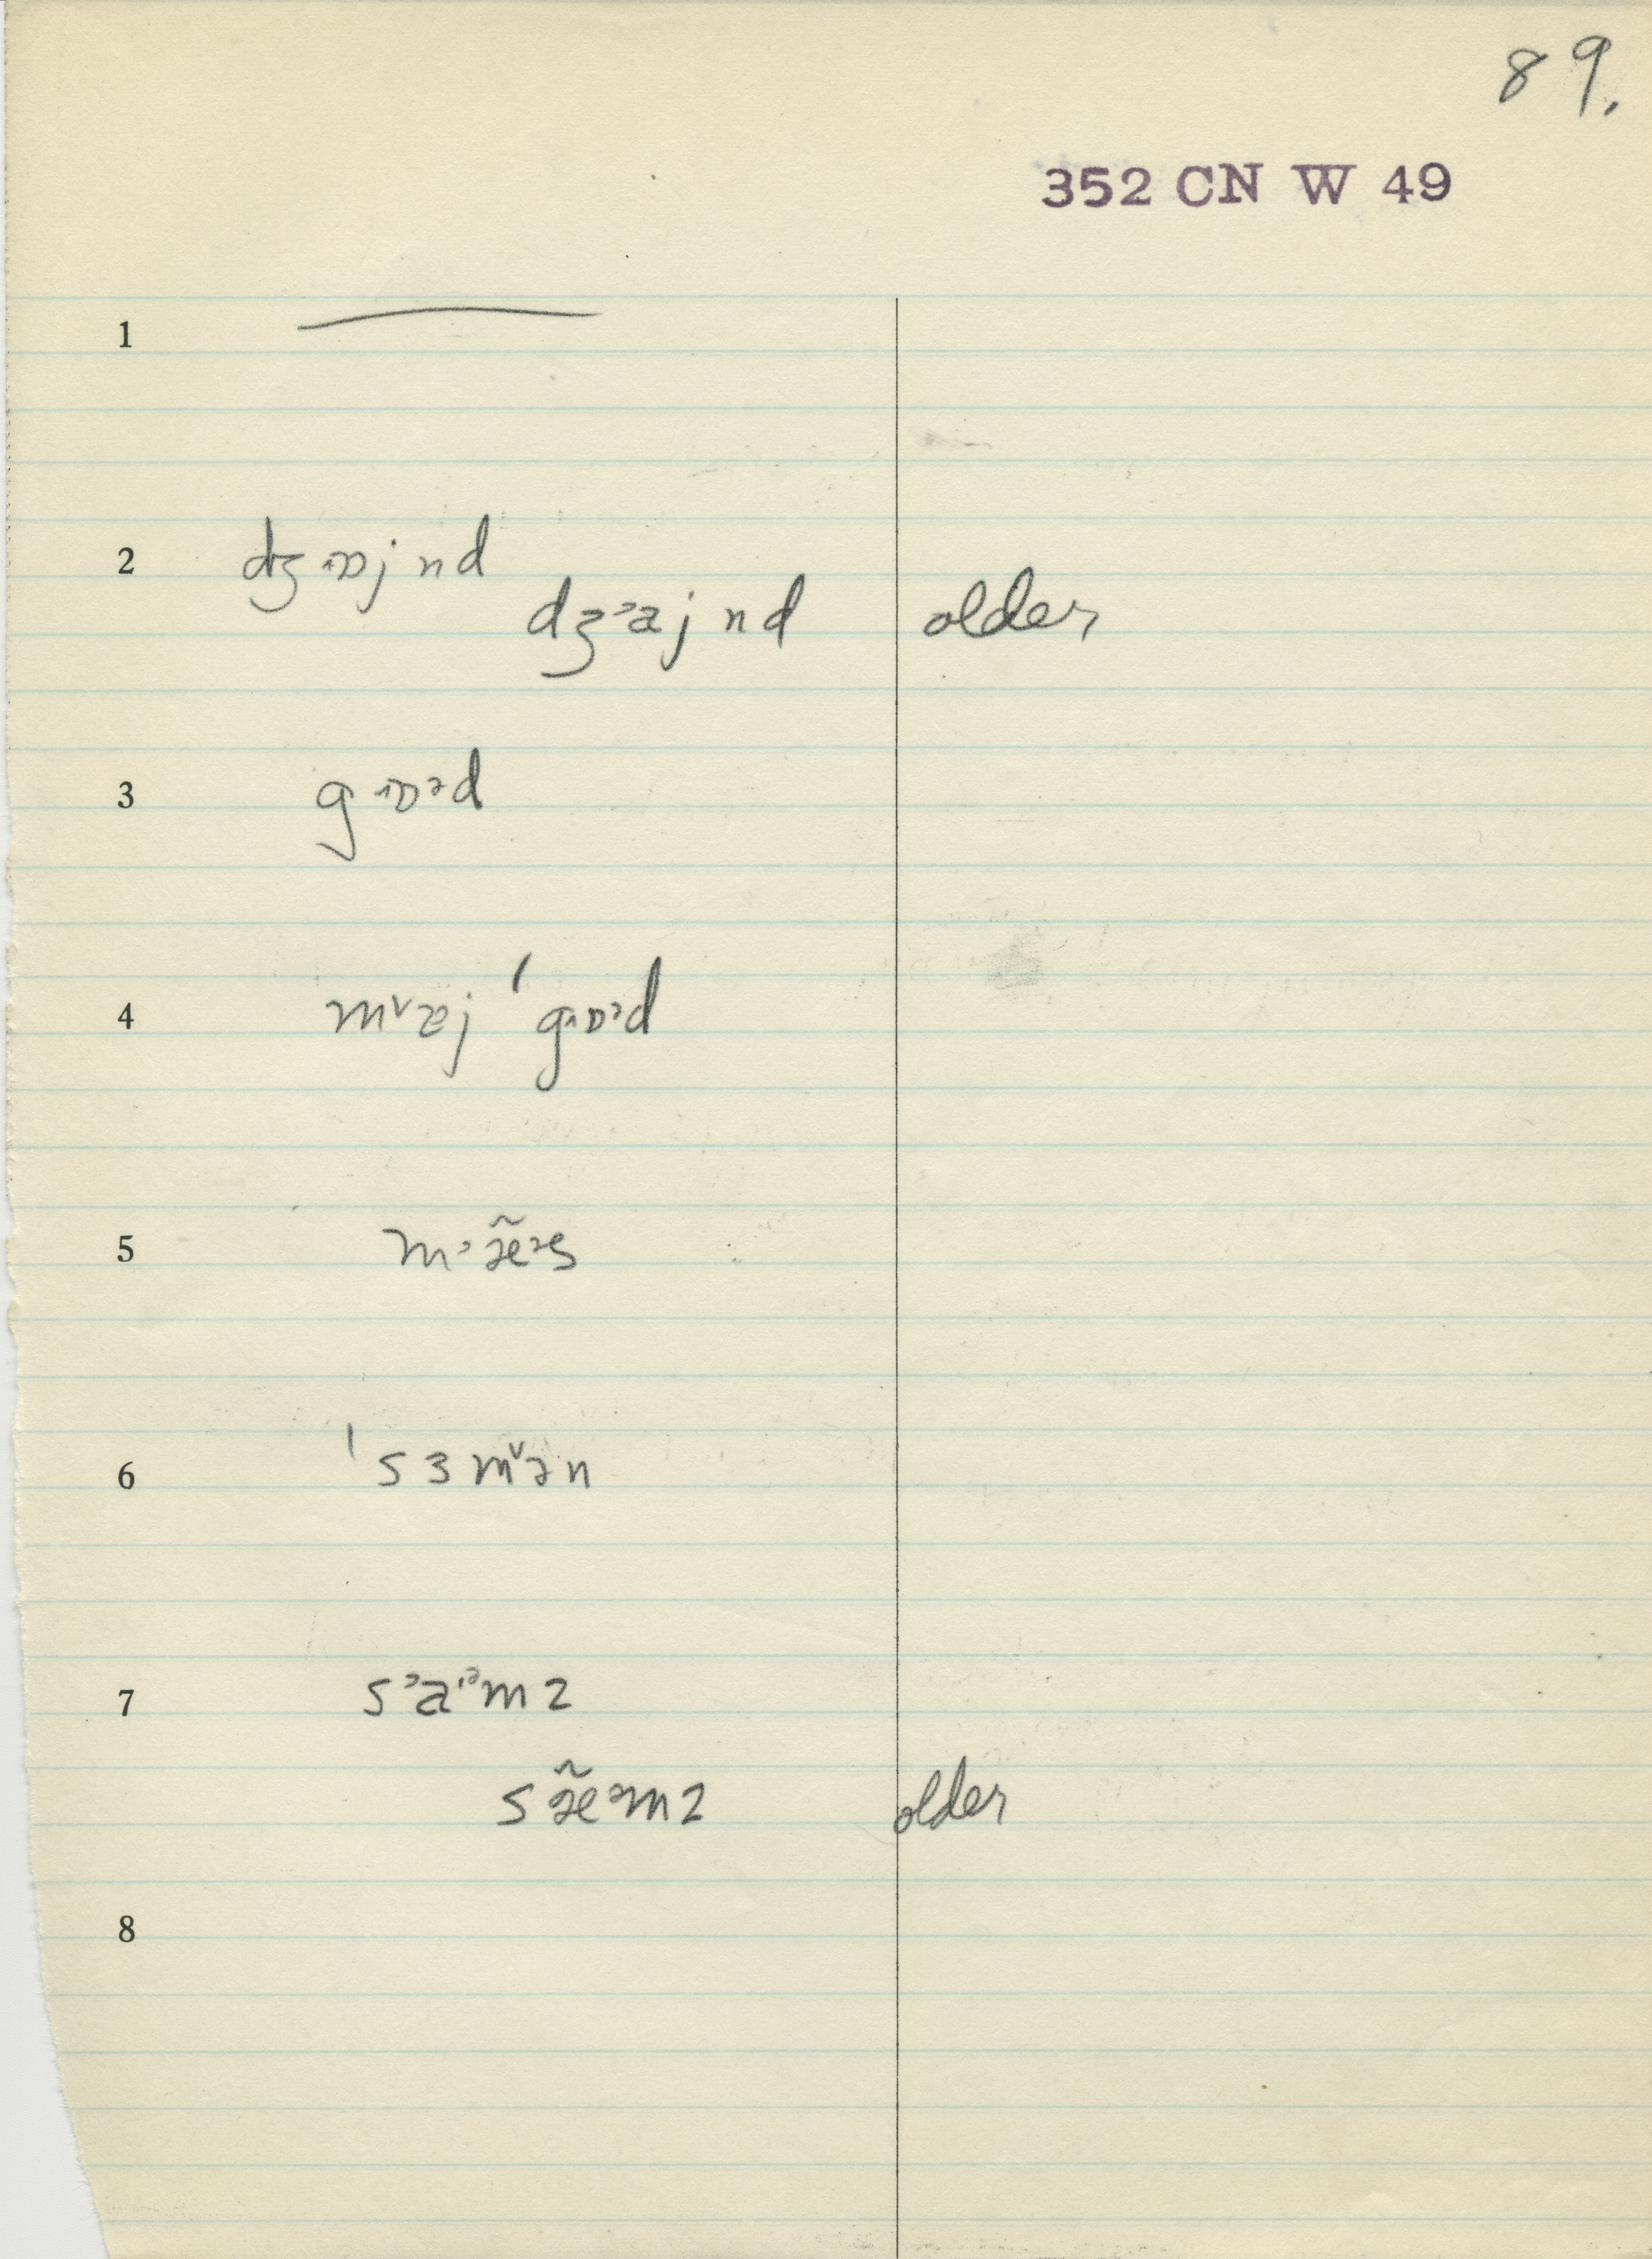 89.
352 CN W 49
1 —
2 dʒɒj nd
dʒᵊaj nd older
3 gɒᵊd
4 mᵛæj ˈgɒᵊd
5 mᵊæ̃ᵊs
6 ˈsɜmᵛən
7 sᵊaᵊmz
sæ̃ᵊmz older
8